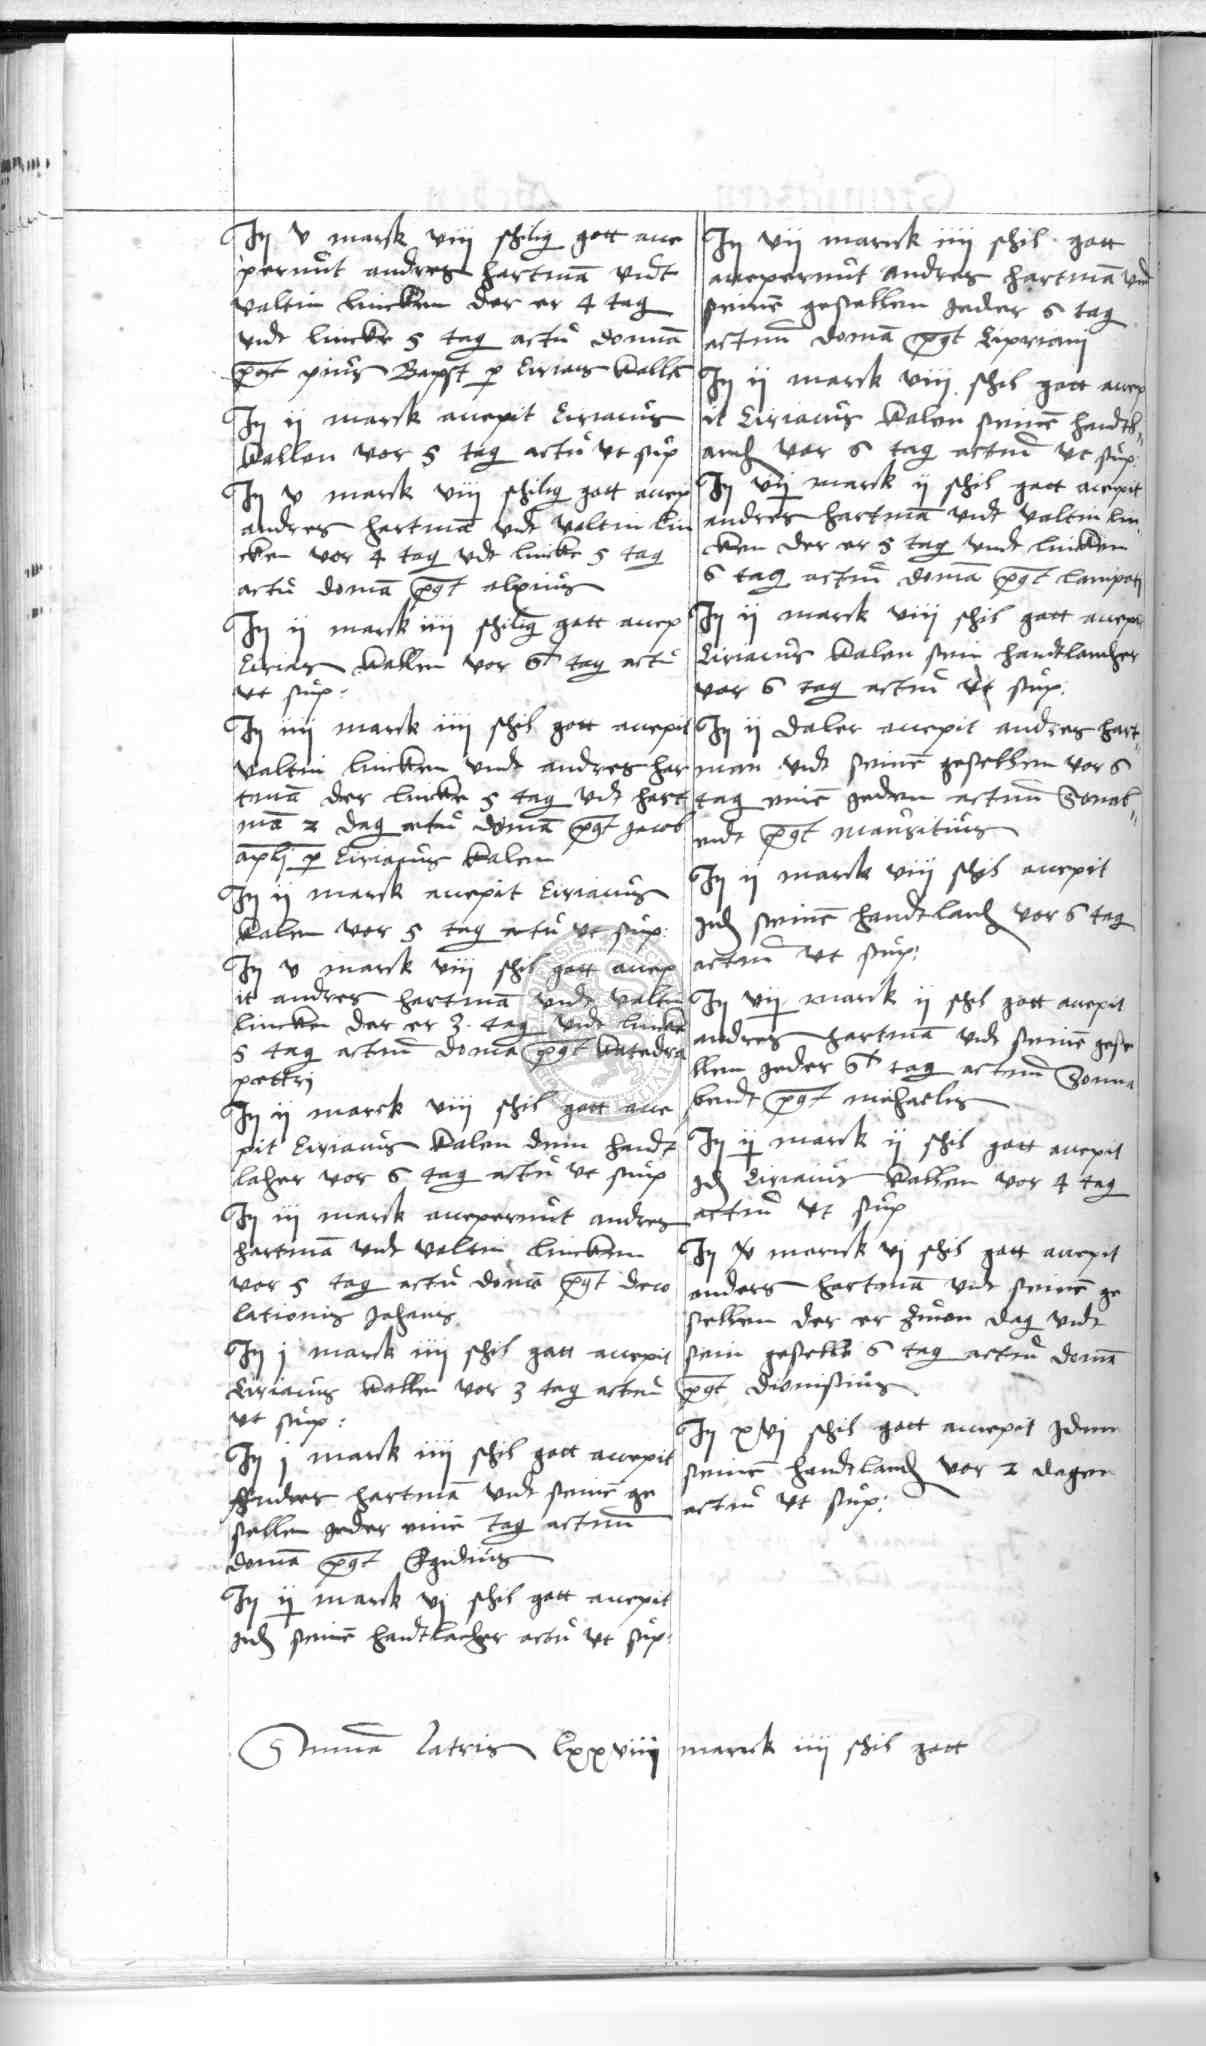 Jn v marck viij schilig gott acce
perunt andres hartmā vndt
valtin lincken der er 4 tag
vndt lincke 5 tag actū domīā
pꝰt pius Bapst p Ciriacs kallē
Jn ij marck accepit Ciriacus
kallen vor 5 tag actū vt sup
Jn v marck viij schilig gott accep
andres hartmā vndt valtin lin
cken vor 4 tag vdt lincke 5 tag
actū domā pꝰt alexius
Jn ij marck iiij schilig gott accep
Cirias kallen vor 6 tag actū
vt sup:
Jn iiij marck iiij schil gott accepit
valtin lincken vndt andres har
tmā der lincke 5 tag vdt hart
mā 2 dag actū domā pꝰt jacob
apłi p Ciriacus kalen
Jn ij marck accepit Ciriacus
kalen vor 5 tag actū vt sup:
Jn v marck viij schil gott accep
it andres hartmā vndt valtin
lincken der er 3 tag vndt lincke
5 tag actum domā pꝰt katedra
pettri
Jn ij marck viij schil gott acce
pit Ciriacus kalen dem handt
laher vor 6 tag actū vt sup
Jn iij marck acceperunt andres
hartmā vndt valtin lincken
vor 5 tag actū domē pꝰt deco
lationis Johans
Jn j marck iiij schil gott accepit
Ciriacus kallen vor 3 tag actū
vt sup:
Jn j marck iiij schil gott accepit
Andres hartmā vndt seinē ge
sellen jeder einē tag actum
domā pꝰt Egidius
Jn ij marck vj schil gott accepit
jdē seinē handtlacher actū vt sup:
Jn vij marck iiij schil gott
acceperunt andres hartmā vnd
seinē gesellen jeder 6 tag
actum domā pꝰt Cipriani
Jn ij marck viij schil gott accep
it Ciriacus kalen seinē handtl
anch vor 6 tag actum vt sup:
Jn vij marck ij schil gott accepit
andres hartmā vndt valtin lin
cken der er 5 tag vndt lincken
6 tag actum domā pꝰt lampati
Jn ij marck viij schil gott accepi
Ciriacus kalen sein handtlancher
vor 6 tag actum vt sup:
Jn ij daler accepit andres hart
man vndt seinē gesellen vor 6
tag einē jeden actum Sonab
endt pꝰt mauritius
Jn ij marck viij schil accepit
jdē seinē handtlanch vor 6 tag
actum vt sup:
Jn vij marck ij schil gott accepit
andres hartmā vndt seinē gese
llen jeder 6 tag actum Sonna
bendt pꝰt michaelis
Jn ij marck ij schil gott accepit
jdē Ciriacus kallen vor 4 tag
actum vt sup
Jn v marck vj schil gott accepit
anders hartmā vndt seinē ge
sellen der er zween dag vndt
sein geselle 6 tag actum domā
pꝰt dionisius
Jn xvj schil gott accepit jdem
seinē handtlanch vor 2 dagen
actum vt sup:
Summa latris lxxviij marck iiij schil gott